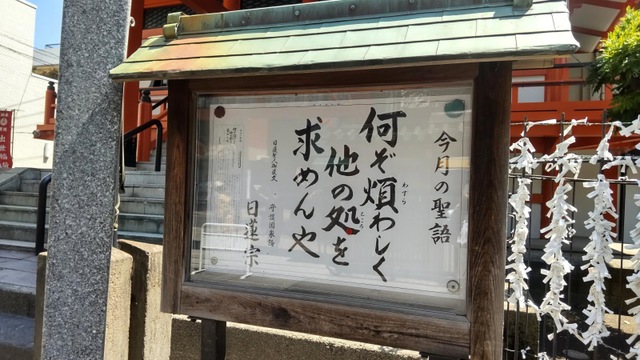 今月の聖語
何ぞ煩わしく
わずら
他の処を
ところ
求めんや
日蓮聖人御遺文
守護国家論
日蓮宗